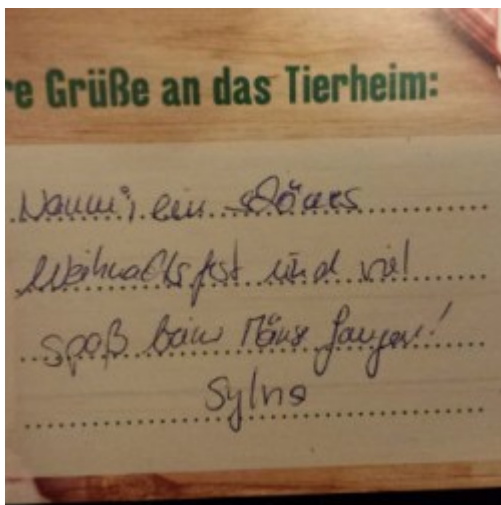 re Grüße an das Tierheim:
ein schönes
Weihnachtsfest und viel
Spaß beim Mäuse fangen!